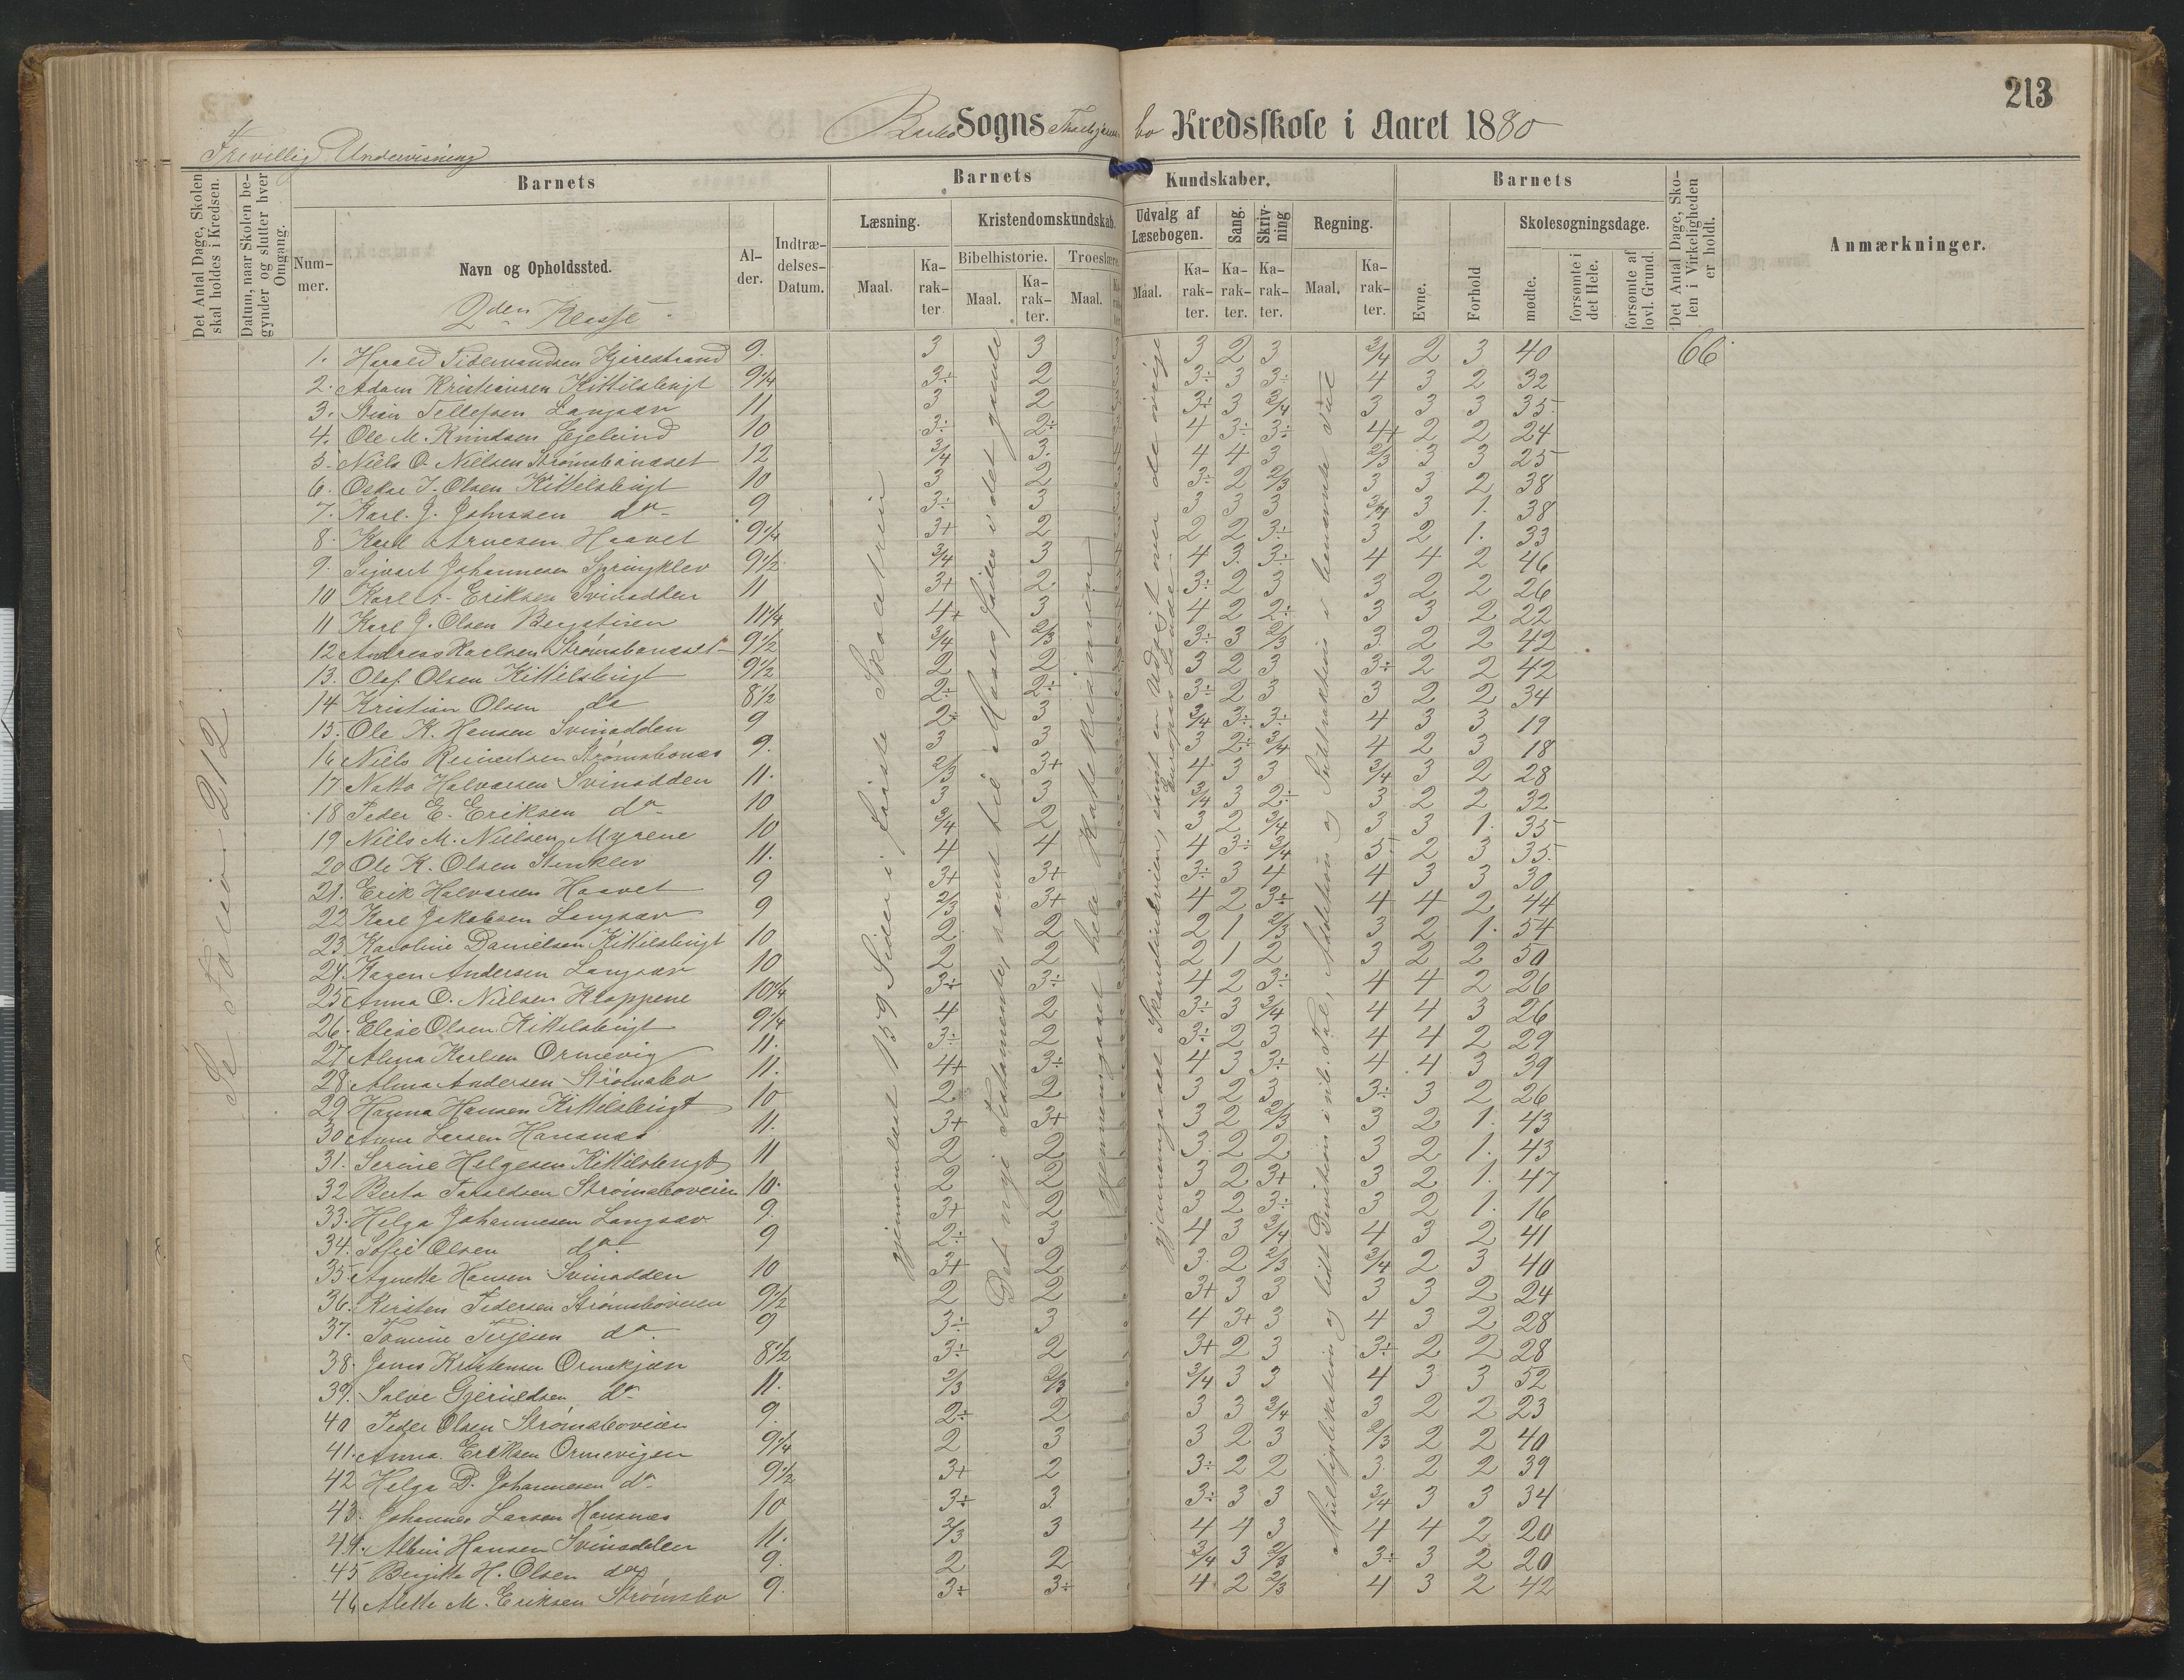 213
Barbo Sogns Thorbjørnsbo Kredsskole i Aaret 1880
Frivillig Undervisning
Det Antal Dage, Skolen skal holdes i Kredsen.
Datum, naar Skolen begynder og slutter hver Omgang.
Barnets
Nummer.
Navn og Opholdssted.
2den Klasse
Alder.
Indtrædelses-Datum.
Barnets Kundskaber.
Læsning.
Maal. Karakter
Kristendomskundskab.
Bibelhistorie. Troeslære.
Maal. Karakter. Maal. Karakter.
Udvalg af Læsebogen.
Maal. Karakter.
Sang. Karakter.
Skrivning Karakter.
Regning.
Maal. Karakter.
Barnets
Evne. Forhold
Skolesøgningsdage.
mødte. forsømte i det Hele. forsømte af lovl. Grund.
Det Antal Dage, Skolen i Virkeligheden er holdt.
Anmærkninger.
Se Folio 212.
gjennemlæst 159 Sider i Læseb. Skoletrin
Det nye Testamente, samt til Moses Side i det gamle
gjennemgaaet hele Katekismen
gjennemgaaet Skandinavien, samt en Udsigt over de øvrige Europas Lande.
Multiplikation og lidt Division i hele Tal, Addition og Subtraktion i benævnte Tal
1. Harald Tidemandsen Kjærestrand 9. 3 3 3 2 3 3/4 2 3 40 66
2. Adam Kristiansen Kittelsbugt 9 1/4 3÷ 2 3÷ 3 3÷ 4 3 2 32
3. Stian Tellefsen Langsæv 11 3 2 3÷ 3 3/4 3 3 3 35
4. Ole M. Knudsen Gjelund 10 3÷ 2÷ 4 3÷ 3÷ 4+ 2 2 24
5. Niels O. Nielsen Strømsbonæset 12 3/4 3. 4 4 3 2/3 3 3 25
6. Oskar J. Olsen Kittelsbugt 10 3 2 3÷ 2 2/3 3 3 2 38
7. Karl. J. Johnsen do 9 3÷ 3 3 3 3 3/4 3 1. 38
8. Karl Arnesen Haavet 9 1/4 3+ 2 2 2 3÷ 3 2 1. 33
9. Sigvart Johannesen Springklev 9 1/2 3/4 3 4 3. 3÷ 4 4 2 46
10 Karl A. Eriksen Svinodden 11 3+ 2 3÷ 2 3 3 2 2 26
11 Karl J. Olsen Bergstien 11 1/4 4+ 3 4 2 2÷ 3 3 2 22
12 Andreas Karlsen Strømsbonæset 9 1/2 3/4 2/3 3÷ 3 2/3 3 2 2 42
13. Olaf Olsen Kittelsbugt 9 1/2 2 2 3 2 3 3÷ 2 2 42
14 Kristian Olsen do 8 1/2 2÷ 2÷ 3÷ 2 3 3 2 2 34
15. Ole K. Hansen Svinodden 9 2÷ 3 3/4 3÷ 3÷ 4 3 3 19
16 Niels Reinertsen Strømsbonæs 9. 3 3 3 2÷ 3/4 4 2 3 18
17. Natto Halvorsen Svinodden 11. 2/3 3+ 4 3 3 3/4 3 2 28
18 Peder E. Eriksen do 10 3 3 3/4 3 2÷ 3 2 2 32
19 Niels M. Nielsen Myrene 10 3/4 2 3 2 3/4 3 3 1. 35
20 Ole K. Olsen Stenklev 11. 4 4 4 3÷ 3/4 5. 2 3 35
21. Erik Halvorsen Haavet 9 3+ 3+ 3÷ 3 4 4 3 3 30
22 Karl Jakobsen Langsæv 9 2/3 3+ 4 2 3÷ 4 4 2 44
23. Karoline Danielsen Kittelsbugt 10 2 2 2 1 2/3 3 2 1. 54
24. Kagen Andersen Langsæv 10 2 2 2 1 2 3 2 2 50
25 Anna O. Nielsen Kloppene 10 1/4 3÷ 3÷ 4 2 3÷ 4 4 2 26
26. Elise Olsen Kittelsbugt 9 1/4 4 2 3÷ 3 3/4 4 4 3 26
27 Alma Karlsen Ormevig 11. 3÷ 2 3÷ 2 3 4 4 2 29
28. Alma Andersen Strømsbo 11. 4+ 3÷ 4 3 3÷ 4 4 3 39
29 Hanna Hansen Kittelsbugt 10 2 2 3 2 3 3÷ 3 2 26
30 Anna Larsen Hansnæs 11. 3+ 3+ 3 2 2/3 3 2 1. 43
31. Serine Helgesen Kittelsbugt 11 2 2 3. 2 2 3 2 1. 43
32 Berta Taraldsen Strømsboveien 10. 2 2 3 2 3+ 3 2 1. 47
33. Helga Johannesen Langsæv 9. 3+ 2 3 2 3÷ 3 2 1. 16
34. Sofie Olsen do 9 2÷ 3 4 3 3/4 4 3 2 41
35. Agnethe Hansen Svinodden 10 3+ 2 3. 2 2/3 3/4 2 3 40
36. Kirsten Pedersen Strømsboveien 9 1/2 2 2 3+ 3 3 3 3 2 24
37. Tomine Terjesen do. 9 3÷ 3 4 3+ 3 4 3 2 28
38. Jens Kristensen Ormekjær 8 1/2 3÷ 2 3+ 2 3 3÷ 2 2 28
39. Salve Gjeruldsen do 11. 2/3 2/3 3/4 3 3 4 3 3 52
40 Peder Olsen Strømsboveien 9. 2÷ 2 3 3 3/4 3 2 2 23
41. Anna Eriksen Ormevigen 9 1/4 2 3 3 2 3 2/3 2 2 40
42 Helga D. Johannesen do 9 1/2 3+ 2 3÷ 2 2 3 2 2 39
43. Johannes Larsen Hansnæs 10 3÷ 3 3÷ 3 3 3/4 3 3 34
44. Albin Hansen Svinodden 11. 2/3 3 4 4 3 4 4 2 20
45 Birgitte H. Olsen do 9. 2 2 3/4 3 2/3 3÷ 3 2 20
46 Alette M. Eriksen Strømsbo 9. 3÷ 3÷ 4 2 2/3 4 3 2 42